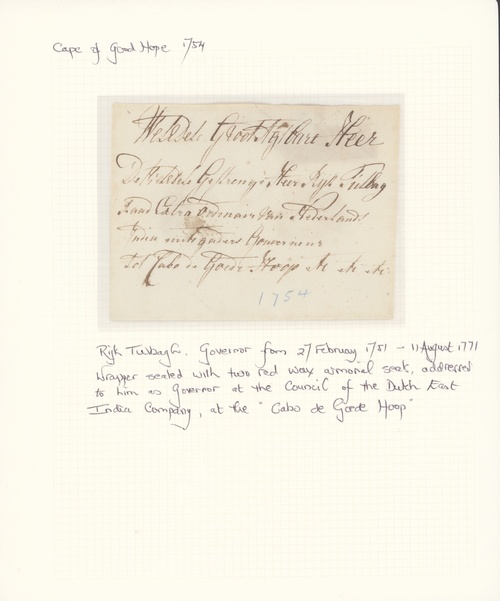 Cape of Good Hope 1754
WelEdele Groot Agtbare Heer
De WelEdele Gestrenge Heer Ryk Tulbag
Raad Extra Ordinair van Nederlands
India mitsgaders Gouverneur
Tot Cabo de Goede Hoop &c &c &c
1754
Rijk Tulbagh. Governor from 27 February 1751 - 11 August 1771
Wrapper sealed with two red wax armorial seals, addressed
to him as Governor at the Council of the Dutch East
India Company, at the "Cabo de Goede Hoop"